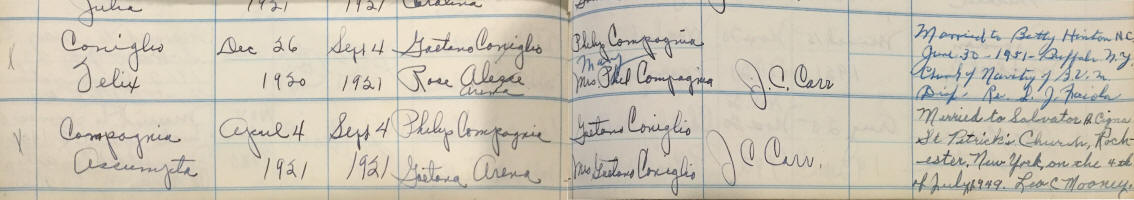 Julia 1921 1921 Carolina
Coniglio Dec 26 Sept 4 Gaetano Coniglio Philip Compagnia Married to Betty Hinton N.C.
Mary June 30 - 1951 - Buffalo N.Y.
Felix 1920 1921 Rose Alesse Mrs Phil Compagnia J.C. Carr Church of Nativity of B.V.M.
Arena Re. L. J.
Compagnia April 4 Sept 4 Philip Compagnia Gaetano Coniglio Married to Salvator B. Cigna
St. Patrick's Church, Roch-
Assumpta 1921 1921 Gaetana Arena Mrs Gaetano Coniglio J C Carr. ester, New York, on the 4th
of July, 1949. Leo C Mooney.